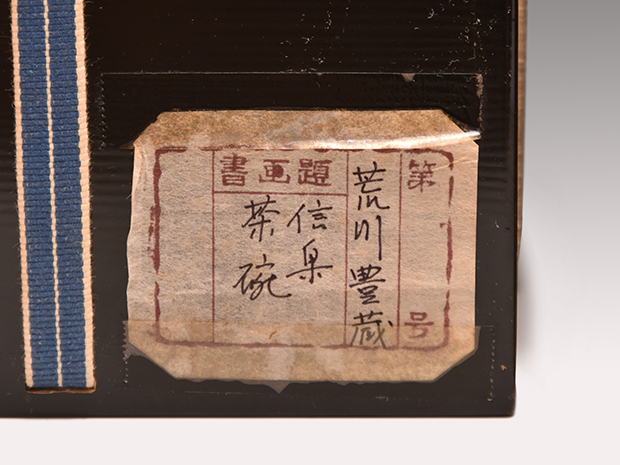 第 号
荒川豊蔵
書画題
信楽
茶碗